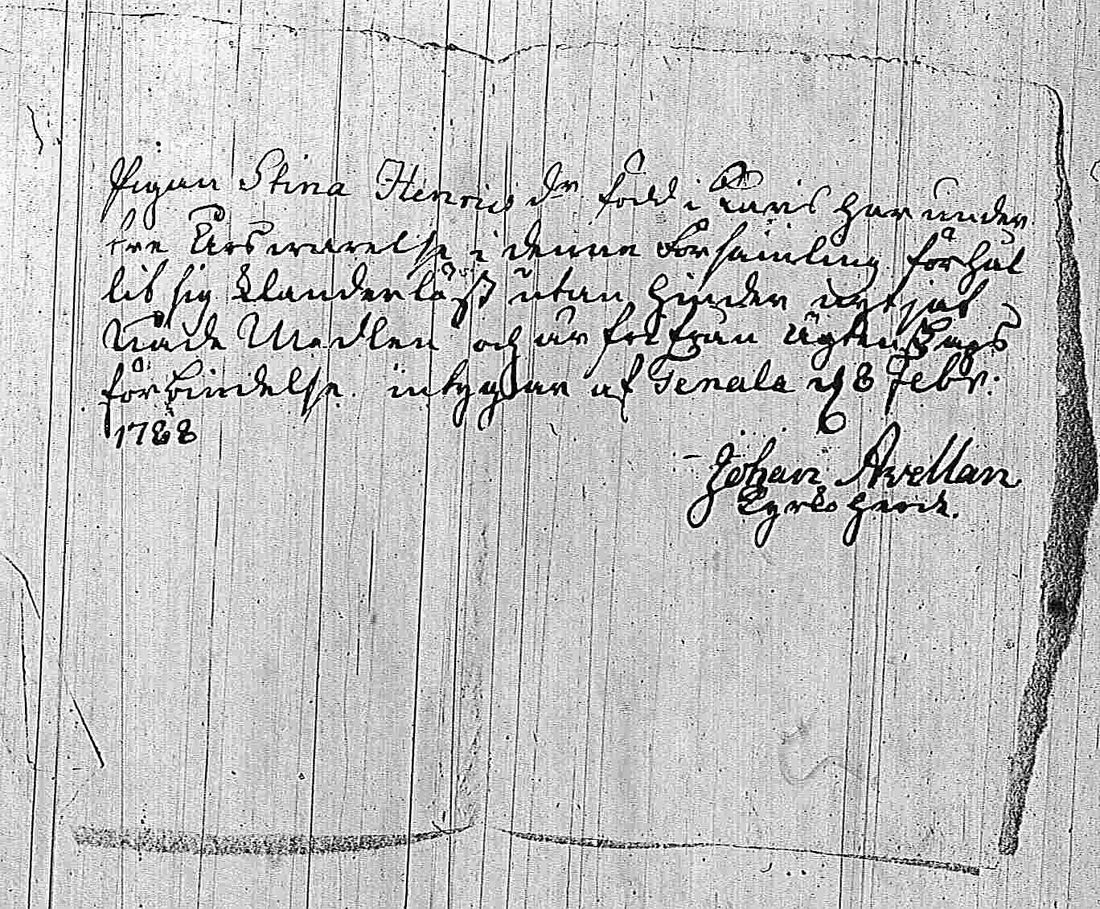 Pigan Stina Henrics dr född i Karis har under
tre Års warelse i denne Församling förhål
lit sig klanderlöst utan hinder nytjat
Nåde Medlen och är fri från Ägtenskaps
förbindelse. intygar af Tenala d 8 Febr.
1788
Johan Avellan
Kyrko herde.